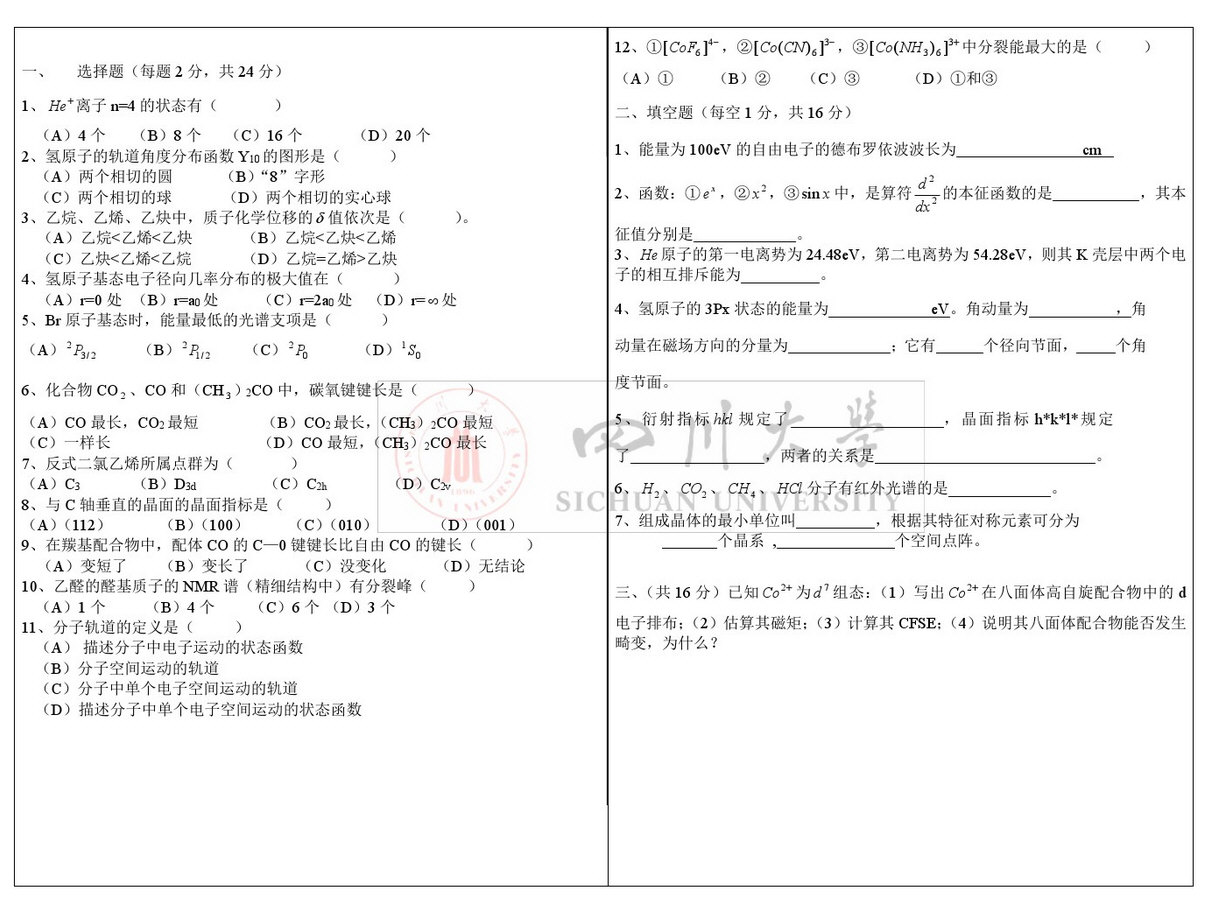 一、 选择题（每题 2 分，共 24 分）
1、He⁺离子 n=4 的状态有（ ）
（A）4 个 （B）8 个 （C）16 个 （D）20 个
2、氢原子的轨道角度分布函数 Y₁₀ 的图形是（ ）
（A）两个相切的圆 （B）“8”字形
（C）两个相切的球 （D）两个相切的实心球
3、乙烷、乙烯、乙炔中，质子化学位移的 δ 值依次是（ ）。
（A）乙烷<乙烯<乙炔 （B）乙烷<乙炔<乙烯
（C）乙炔<乙烯<乙烷 （D）乙烷=乙烯>乙炔
4、氢原子基态电子径向几率分布的极大值在（ ）
（A）r=0 处 （B）r=a₀ 处 （C）r=2a₀ 处 （D）r=∞处
5、Br 原子基态时，能量最低的光谱支项是（ ）
（A）²P₃/₂ （B）²P₁/₂ （C）²P₀ （D）¹S₀
6、化合物 CO₂、CO 和（CH₃）₂CO 中，碳氧键键长是（ ）
（A）CO 最长，CO₂ 最短 （B）CO₂ 最长，（CH₃）₂CO 最短
（C）一样长 （D）CO 最短，（CH₃）₂CO 最长
7、反式二氯乙烯所属点群为（ ）
（A）C₃ （B）D₃d （C）C₂h （D）C₂v
8、与 C 轴垂直的晶面的晶面指标是（ ）
（A）（112） （B）（100） （C）（010） （D）（001）
9、在羰基配合物中，配体 CO 的 C—0 键键长比自由 CO 的键长（ ）
（A）变短了 （B）变长了 （C）没变化 （D）无结论
10、乙醛的醛基质子的 NMR 谱（精细结构中）有分裂峰（ ）
（A）1 个 （B）4 个 （C）6 个 （D）3 个
11、分子轨道的定义是（ ）
（A） 描述分子中电子运动的状态函数
（B）分子空间运动的轨道
（C）分子中单个电子空间运动的轨道
（D）描述分子中单个电子空间运动的状态函数
12、①[CoF₆]⁴⁻，②[Co(CN)₆]³⁻，③[Co(NH₃)₆]³⁺中分裂能最大的是（ ）
（A）① （B）② （C）③ （D）①和③
二、填空题（每空 1 分，共 16 分）
1、能量为 100eV 的自由电子的德布罗依波波长为________________cm
2、函数：①eˣ，②x²，③sin x 中，是算符 d²/dx² 的本征函数的是___________，其本
征值分别是_____________。
3、He 原子的第一电离势为 24.48eV，第二电离势为 54.28eV，则其 K 壳层中两个电
子的相互排斥能为__________。
4、氢原子的 3Px 状态的能量为_____________eV。角动量为___________，角
动量在磁场方向的分量为_____________；它有______个径向节面，_____个角
度节面。
5、衍射指标 hkl 规定了____________________，晶面指标 h*k*l*规定
了_________________，两者的关系是____________________________。
6、H₂、CO₂、CH₄、HCl 分子有红外光谱的是_____________。
7、组成晶体的最小单位叫__________，根据其特征对称元素可分为
_______个晶系 ，_______________个空间点阵。
三、（共 16 分）已知 Co²⁺为 d⁷ 组态：（1）写出 Co²⁺在八面体高自旋配合物中的 d
电子排布；（2）估算其磁矩；（3）计算其 CFSE；（4）说明其八面体配合物能否发生
畸变，为什么？
四川大學
SICHUAN UNIVERSITY